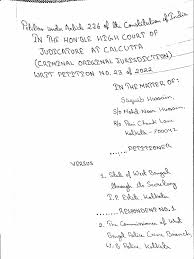 Petition under Article 226 of the Constitution of India
IN THE HON'BLE HIGH COURT OF
JUDICATURE AT CALCUTTA
(CRIMINAL ORIGINAL JURISDICTION)
WRIT PETITION NO. 23 of 2022
IN THE MATTER OF:
Hussain,
S/o Mohd Hussain,
R/o Lane
Kolkata - 700042
...... PETITIONER
VERSUS
1. State of West Bengal
through its Secretary
Kolkata
...... RESPONDENT NO. 1
2. The Commissioner of West
Bengal Police Crime Branch,
W.B Police, Kolkata